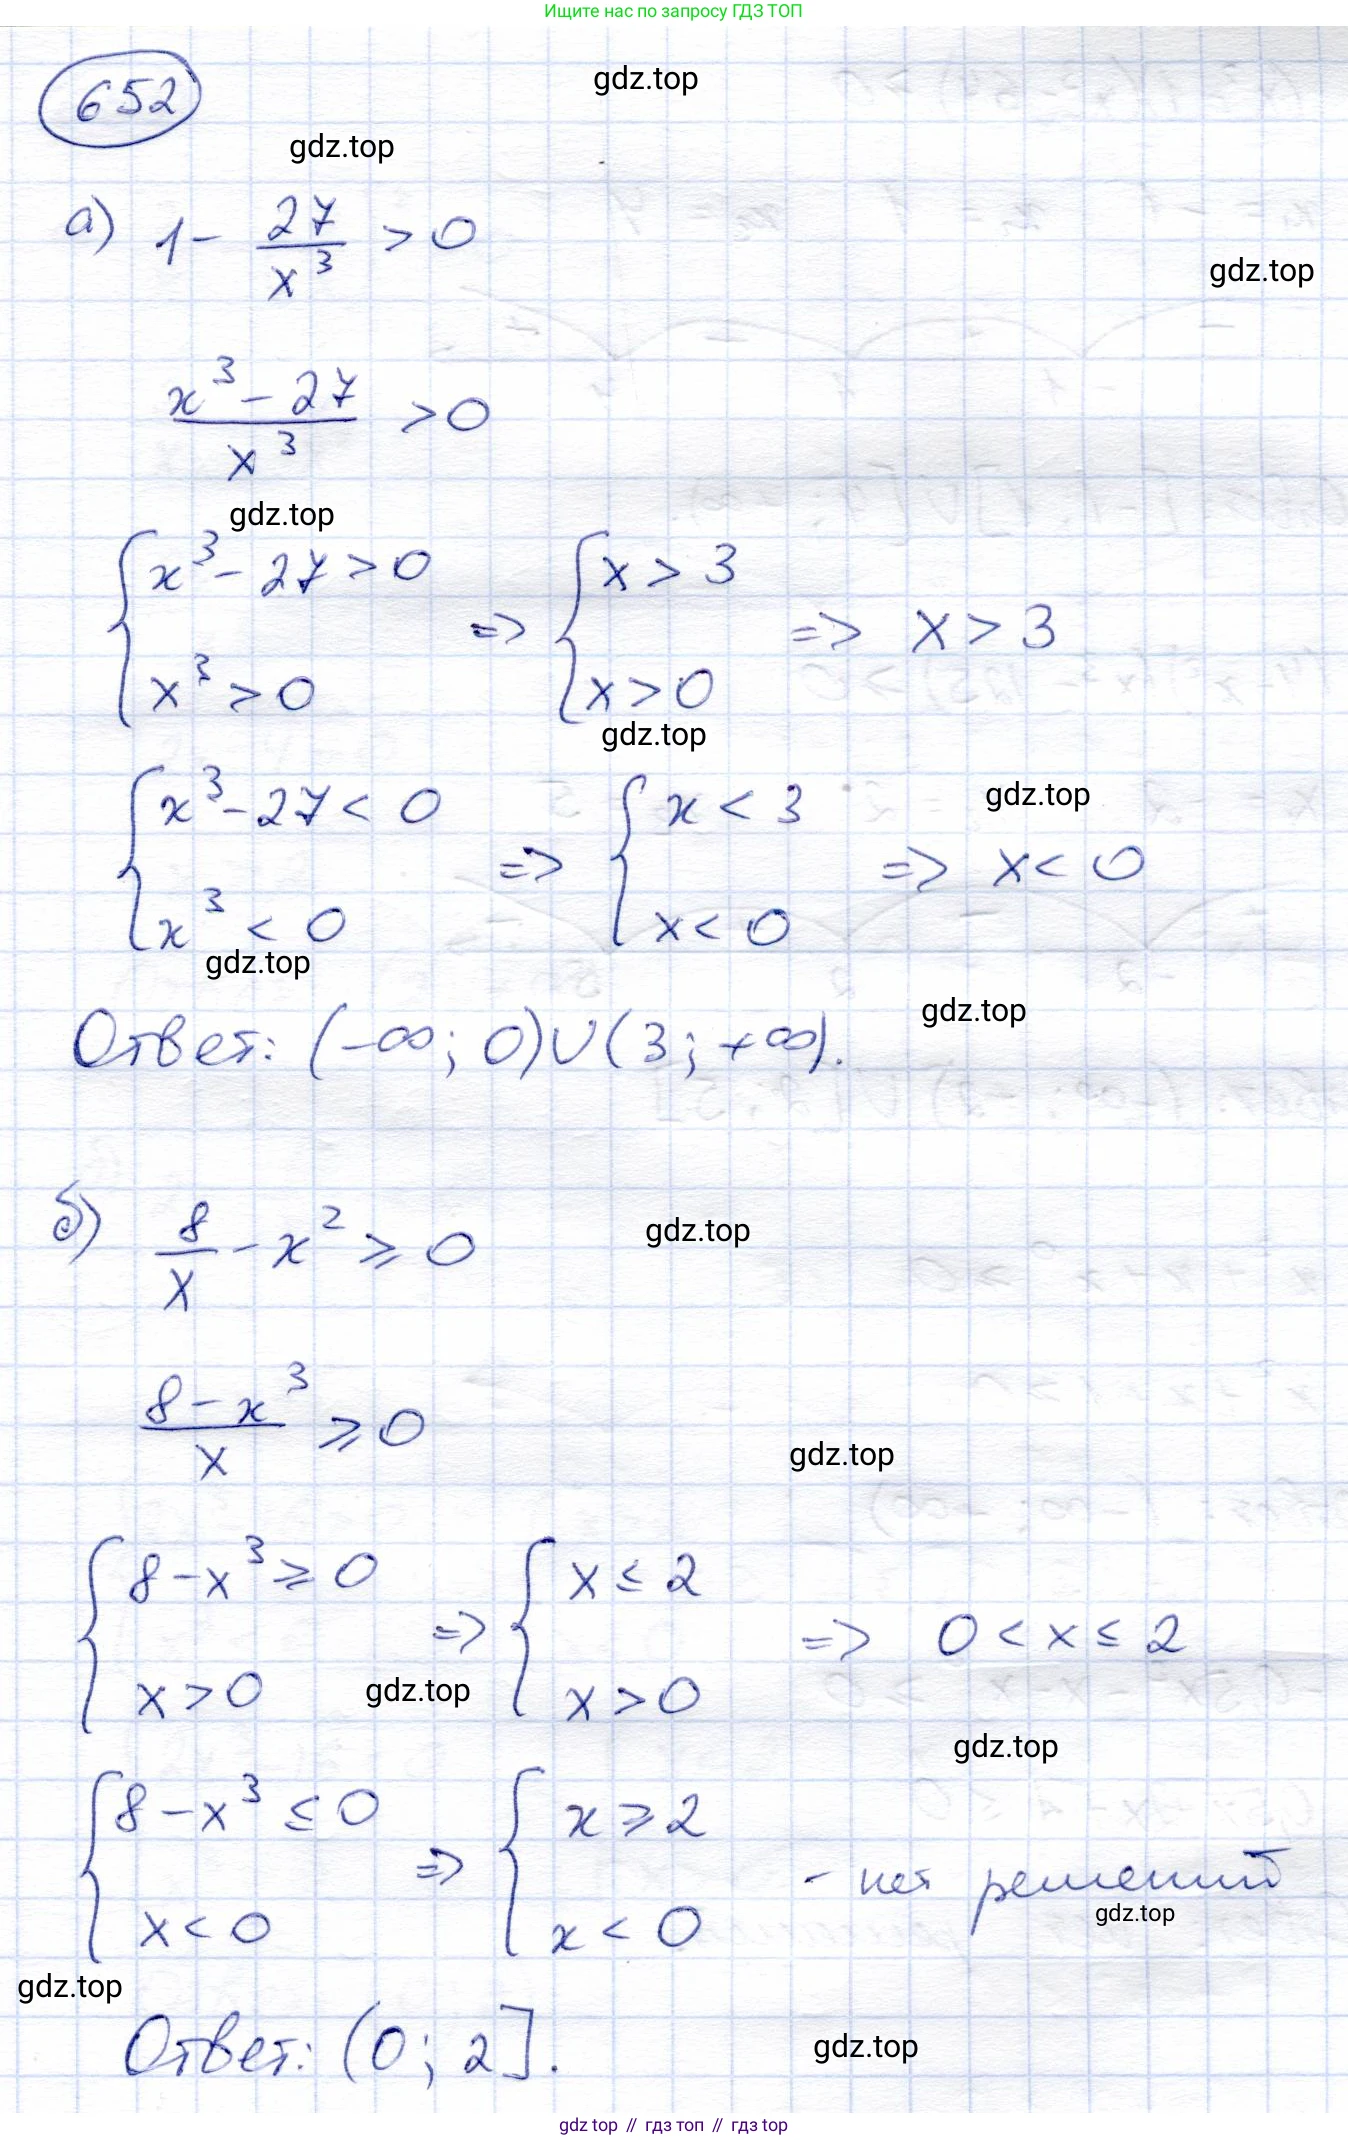 Ищите нас по запросу ГДЗ ТОП
652
gdz.top
gdz.top
а) 1 - 27/x³ > 0
gdz.top
(x³ - 27)/x³ > 0
gdz.top
{ x³ - 27 > 0 => { x > 3 => x > 3
x³ > 0 x > 0
gdz.top
gdz.top
{ x³ - 27 < 0 => { x < 3 => x < 0
x³ < 0 x < 0
gdz.top
gdz.top
Ответ: (-∞; 0)∪(3; +∞).
б) 8/x - x² ⩾ 0
gdz.top
(8 - x³)/x ⩾ 0
gdz.top
{ 8 - x³ ⩾ 0 => { x ≤ 2 => 0 < x ≤ 2
x > 0 x > 0
gdz.top
gdz.top
{ 8 - x³ ≤ 0 => { x ⩾ 2 - нет решений
x < 0 x < 0
gdz.top
gdz.top
Ответ: (0; 2].
gdz.top
gdz top // гдз топ // гдз top